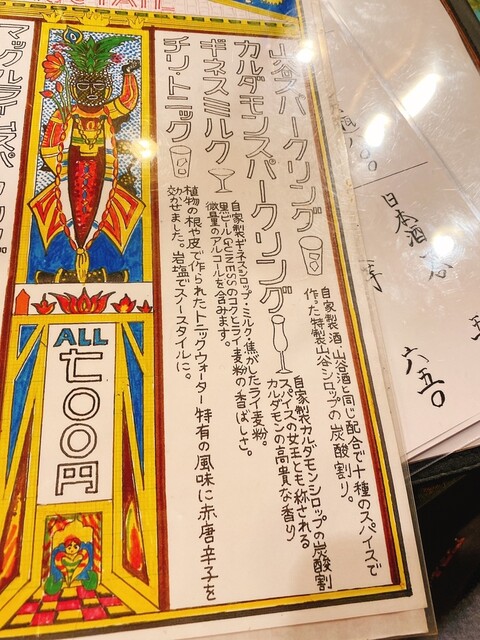 TAIL
山谷スパークリング
自家製酒、山谷酒と同じ配合で十種のスパイスで
作った特製山谷シロップの炭酸割り。
カルダモンスパークリング
自家製カルダモンシロップの炭酸割
スパイスの女王とも称される
カルダモンの高貴な香り
ギネスミルク
自家製ギネスシロップ・ミルク・焦がしたライ麦粉。
黒ビールGUINESSのコクとライ麦粉の香ばしさ。
微量のアルコールを含みます。
チリ・トニック
植物の根や皮で作られたトニックウォーター特有の風味に赤唐辛子を
効かせました。岩塩でスノースタイルに。
ALL
七〇〇円
日本酒
六五〇